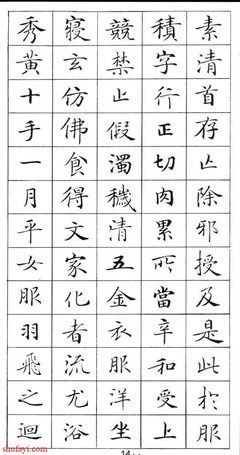 素清首存亾除邪授及是此於服
積字行正切肉累所當辛和受上
競禁止假濁穢清五金衣服洋坐
寢玄仿佛食得文家化者流尤浴
秀黃十手一月平女服羽飛之迴
14
shufayi.com